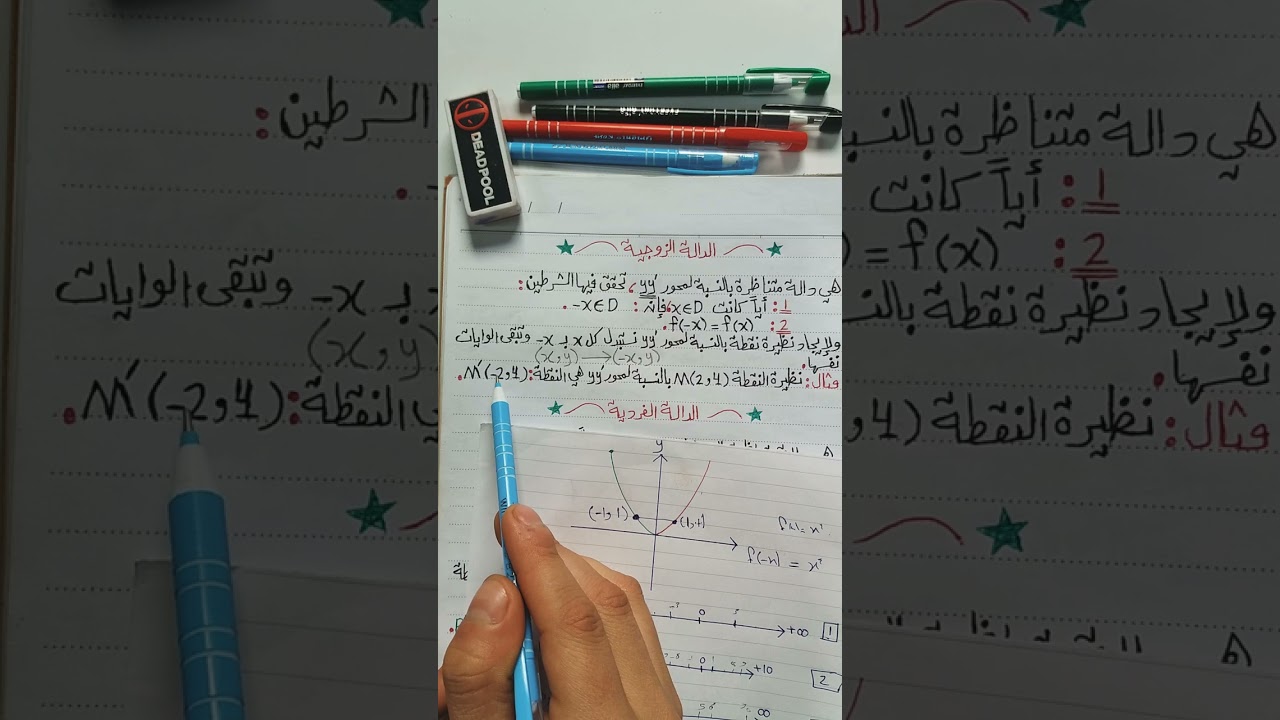 DEADPOOL
/ /
الدالة الزوجية
هي دالة متناظرة بالنسبة لمحور yy′، تحقق فيها الشرطين:
1: أياً كانت x∈D، فإنّ: -x∈D.
2: f(-x) = f(x).
ولإيجاد نظيرة نقطة بالنسبة لمحور yy′ نستبدل كل x بـ -x وتبقى الوايات
نفسها. (x,y) → (-x,y)
مثال: نظيرة النقطة M(2,4) بالنسبة لمحور yy′ هي النقطة: M′(-2,4).
الدالة الفردية
y
(-1,1)
f(-x) = x²
0
+∞
1
0 1
+10
2
∞